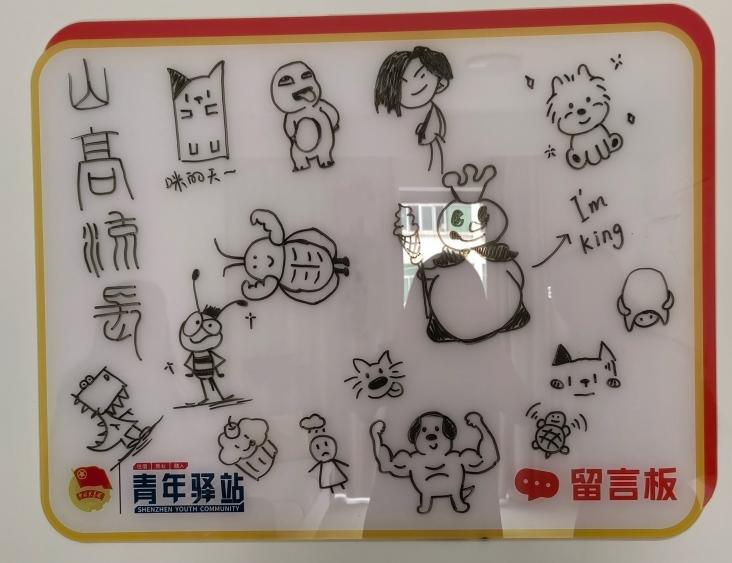 山高流長
咪的天~
I'm
king
住宿 | 就业 | 融入
青年驿站
SHENZHEN YOUTH COMMUNITY
留言板